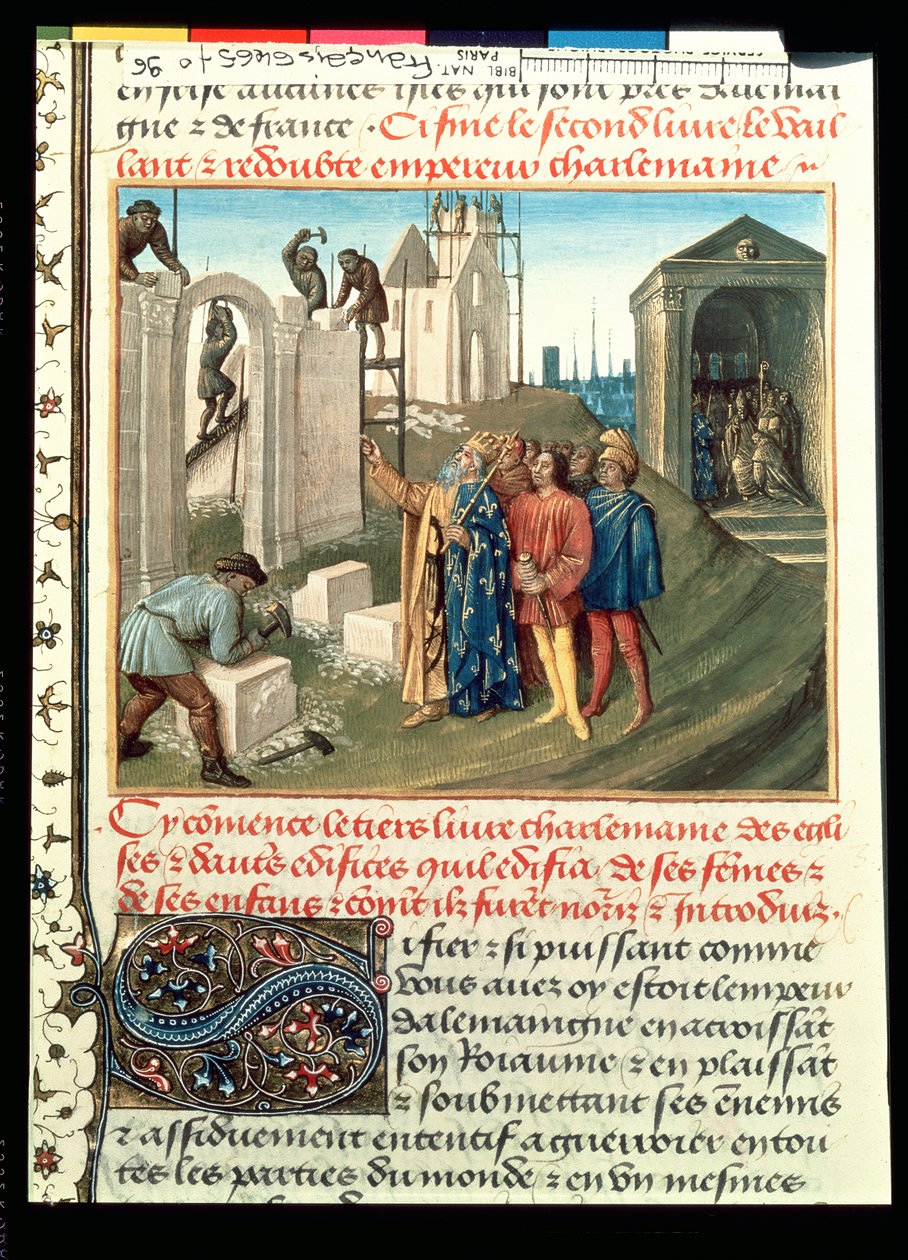 BIBL. NAT. PARIS
Français 6465 fo 96
en serse aucunes isles qui sont pres dalemai
gne ⁊ de france · Ci fine le second livre le vail
lant ⁊ redoubte empereur charlemaine
Cy cōmence le tiers livre charlemaine des egli
ses ⁊ dautr̄s edifices quil edifia de ses fēmes ⁊
de ses enfans ⁊ cōmt̄ ilz furēt norriz ⁊ Introduiz.
Si fier ⁊ si puissant comme
vous avez oy estoit lempereur
dalemaingne en acroissāt
son Roiaume ⁊ en plaissāt
⁊ soubmettant ses ēnemis
⁊ assiduement ententif a guerroier en tou
tes les parties du monde ⁊ en un mesmes